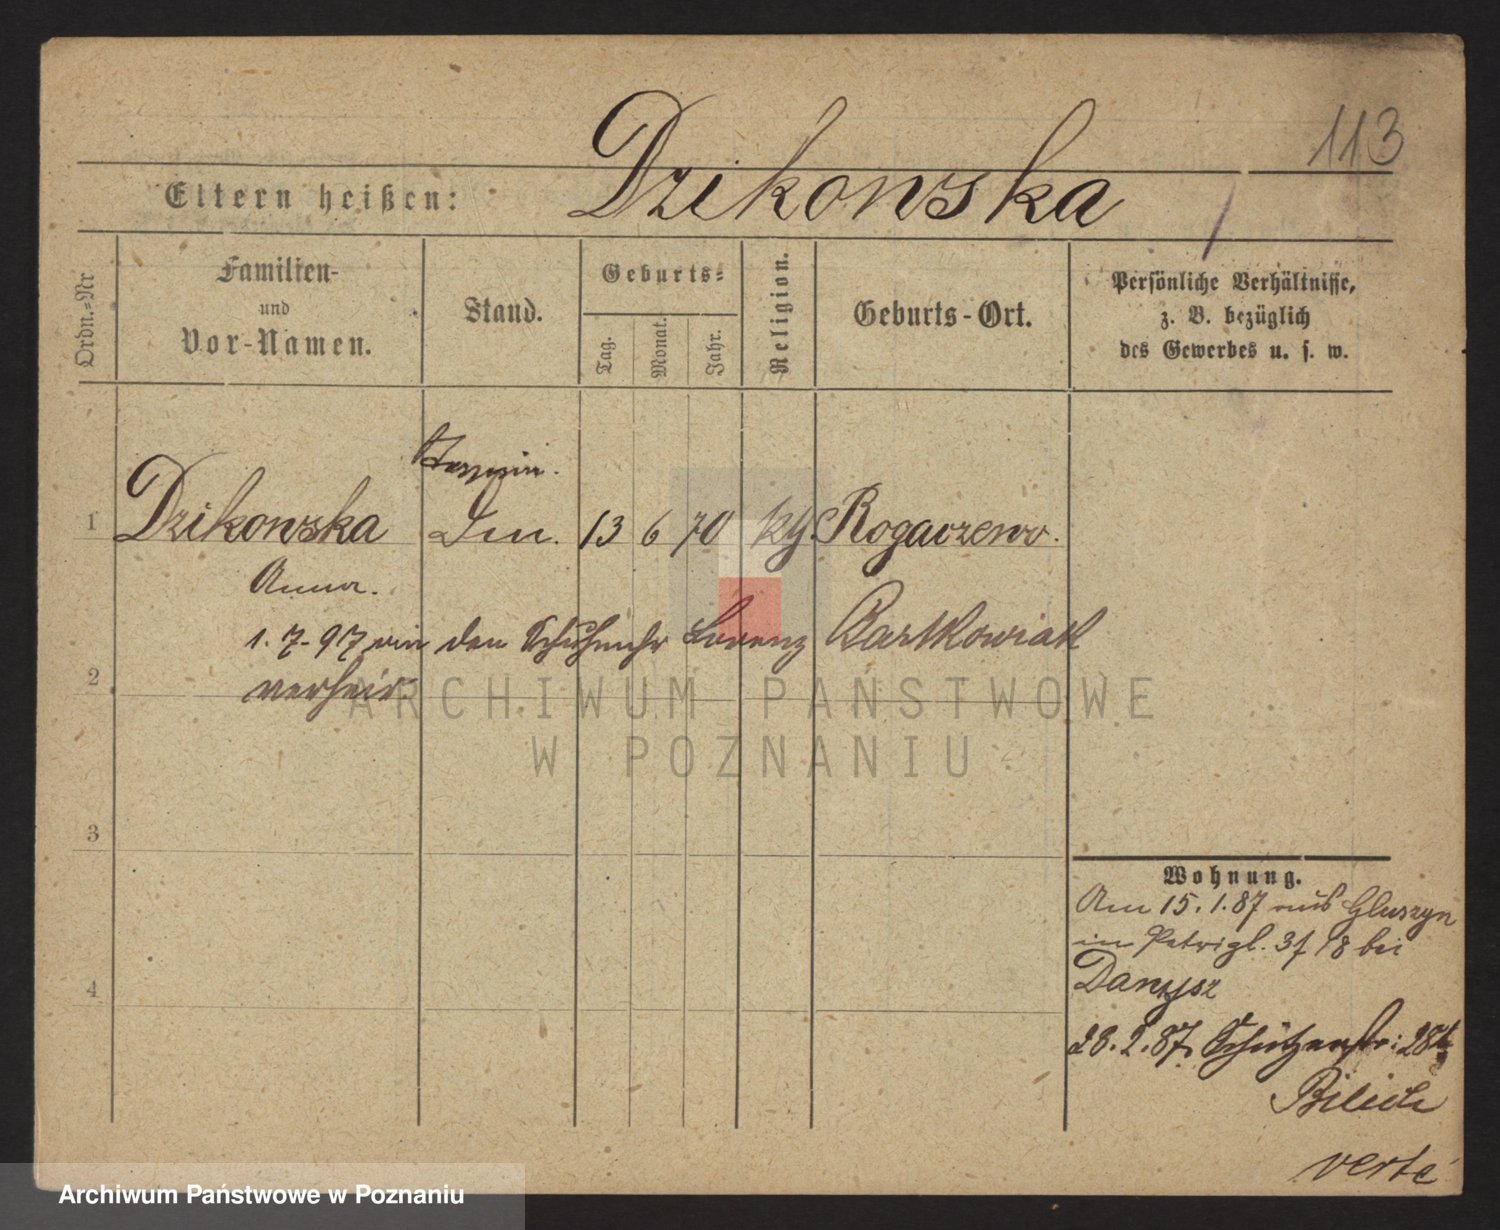 113
Eltern heißen: Dzikowska
Ordn.-Nr
Familien-
und
Vor-Namen.
Stand.
Geburts-
Tag.
Monat.
Jahr.
Religion.
Geburts-Ort.
Persönliche Verhältnisse,
z. B. bezüglich
des Gewerbes u. s. w.
1 Dzikowska 13 6 70 Rogaczewo.
Anna.
1. 7. 97 den Lorenz Bartkowiak
2 verheir.
3
4
Wohnung.
Am 15. 1. 87 aus Gluszyn
in 18 bei
Danysz
28. 2. 87. Schützenstr: 28
verte
ARCHIWUM PAŃSTWOWE
W POZNANIU
Archiwum Państwowe w Poznaniu